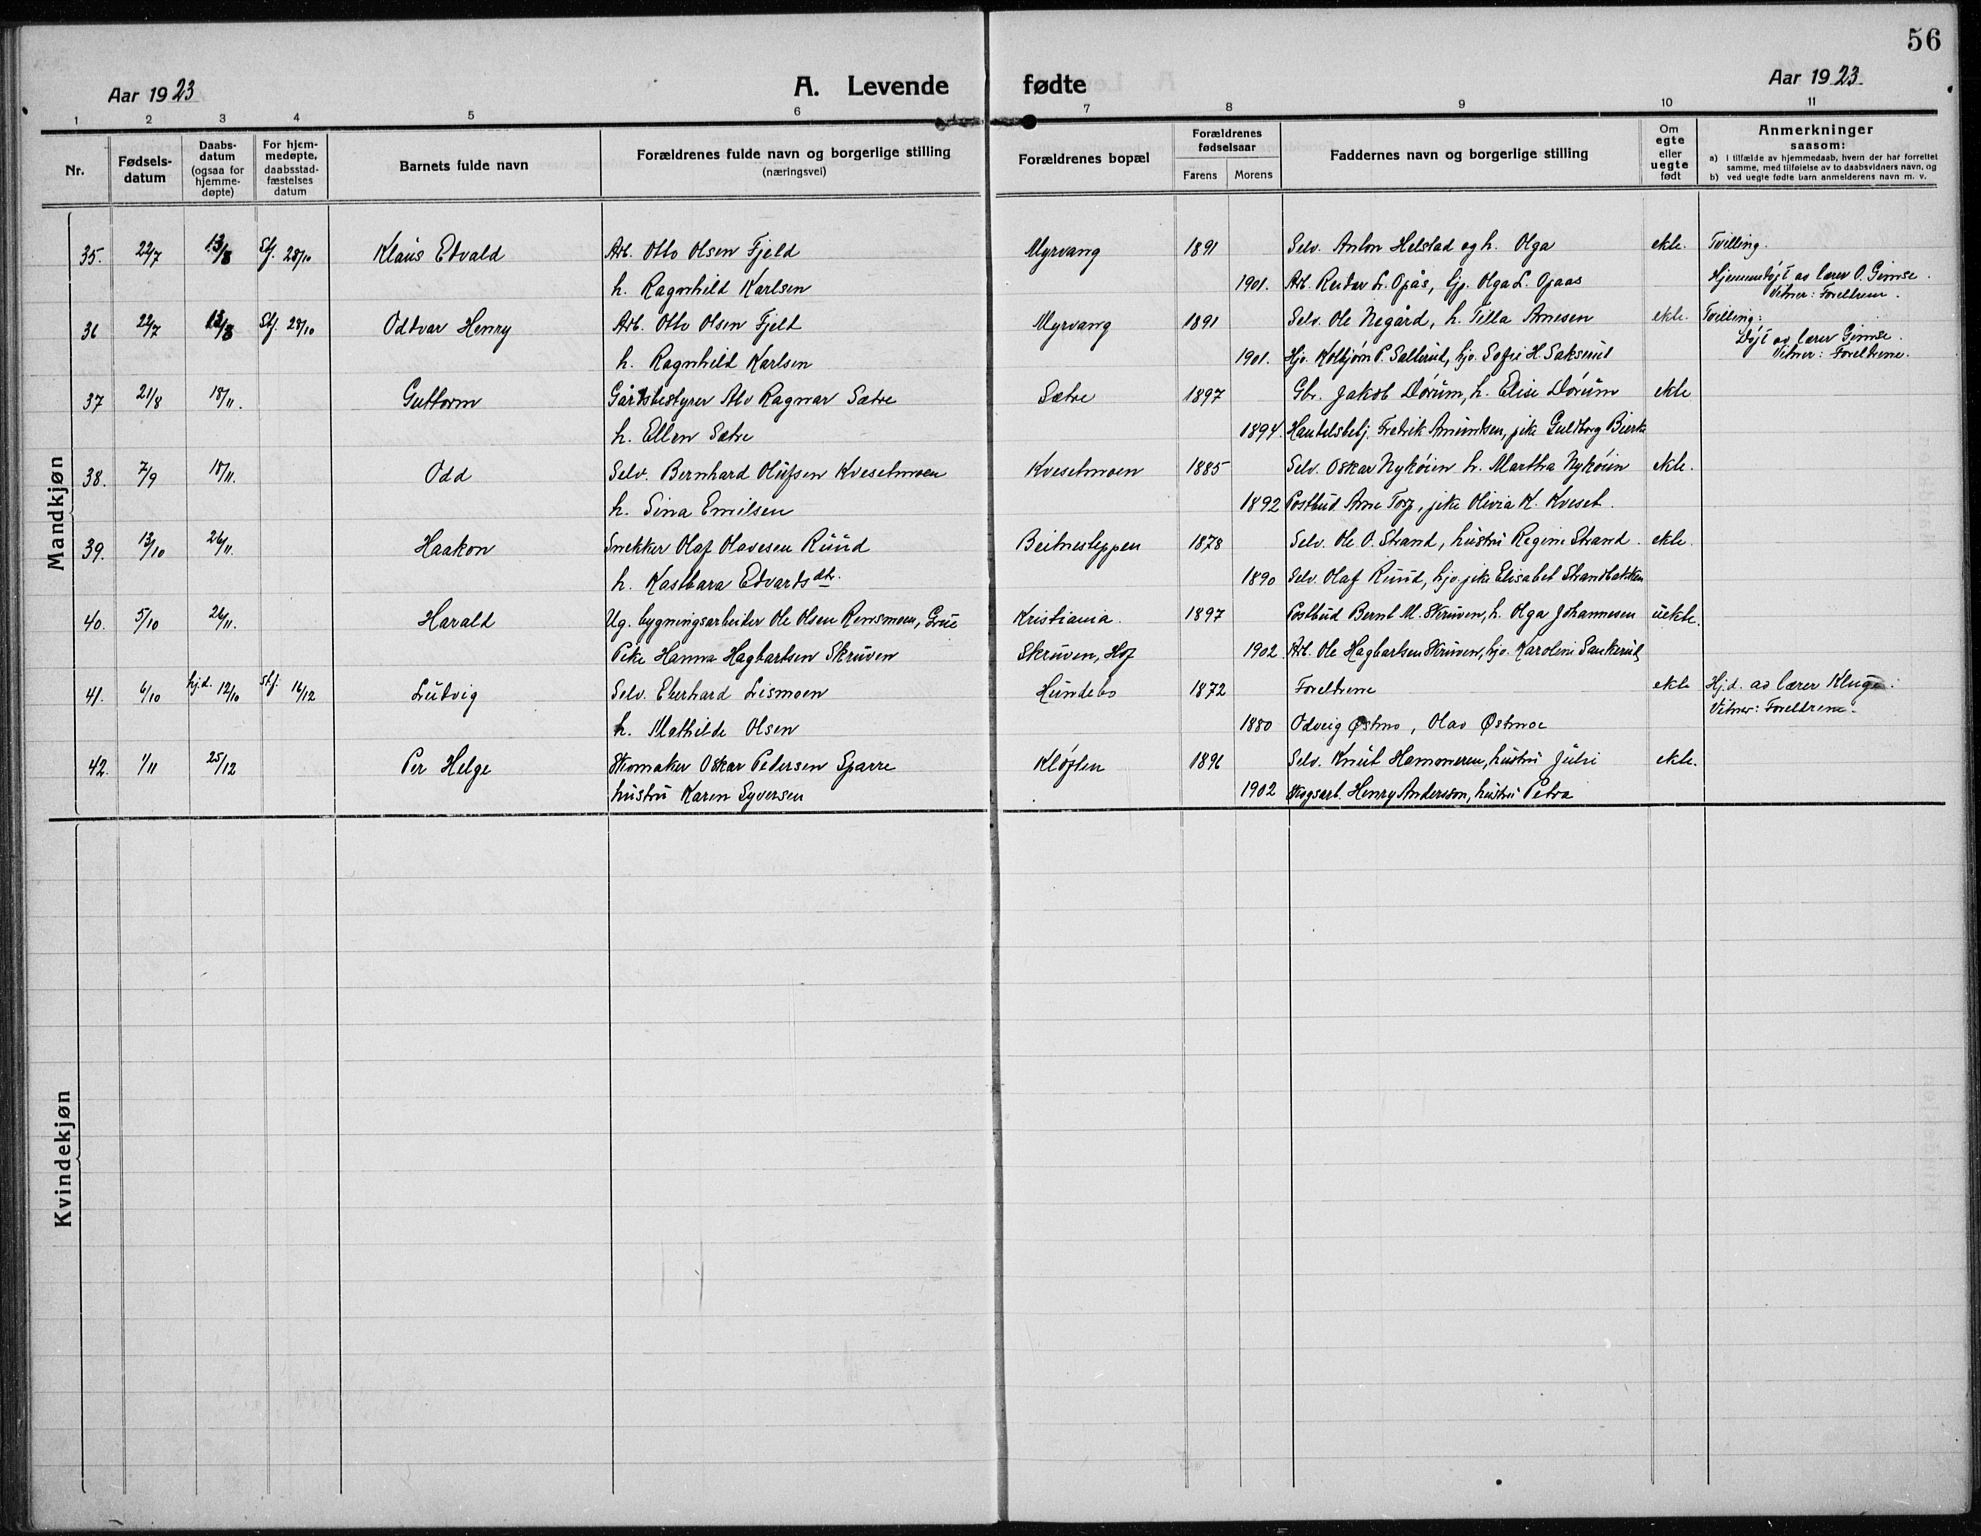 56
Aar 1923
A. Levende fødte
Aar 1923.
1 2 3 4 5 6 7 8 9 10 11
Nr.
Fødsels-
datum
Daabs-
datum
(ogsaa for
hjemme-
døpte)
For hjem-
medøpte,
daabsstad-
fæstelses
datum
Barnets fulde navn
Forældrenes fulde navn og borgerlige stilling
(næringsvei)
Forældrenes bopæl
Forældrenes
fødselsaar
Farens Morens
Faddernes navn og borgerlige stilling
Om
egte
eller
uegte
født
Anmerkninger
saasom:
a) I tilfælde av hjemmedaab, hvem der har forrettet
samme, med tilføielse av to daabsvidners navn, og
b) ved uegte fødte barn anmelderens navn m. v.
Mandkjøn
35. 22/7 13/8 Stf. 28/10 Klaus Edvald Arb. Otto Olsen Fjeld Myrvang 1891 Selv. Anton Helstad og h. Olga ekte. Tvilling.
h. Ragnhild Karlsen 1901. Arb. Reidar L. Opås, Gp. Olga L. Opaas Hjemmedøpt av lærer O. Gimse.
Vitner: Foreldrene.
36 22/7 13/8 Stf. 28/10 Oddvar Henry Arb. Otto Olsen Fjeld Myrvang 1891 Selv. Ole Negård, h. Tilla Arnesen ekte. Tvilling:
Døpt av lærer Gimse.
h. Ragnhild Karlsen 1901. Hjv. Kolbjørn P. Sætterud, hjv. Sofie H. Sakserud Vitner: Foreldrene.
37 21/8 18/11. Guttorm Gårdsbestyrer Alv Ragnar Sætre Sætre 1897 Gbr. Jakob Dórum, h. Elise Dórum ekte
h. Ellen Sætre 1894. Handelsbetj. Fredrik Amundsen, pike Guldborg Bierke
38. 7/9 18/11. Odd Selv. Bernhard Olufsen Kvesetmoen Kvesetmoen 1885 Selv. Oskar Nykóien h. Martha Nykóien ekte.
h. Sina Emilsen 1892 Postbud Arne Torp, pike Olivia K. Kveset.
39. 13/10 26/11. Haakon Snekker Olaf Olavesen Ruud Beitnesteppen 1878 Selv. Ole O. Strand, hustru Regine Strand. ekte.
h. Kastbara Edvardsdtr. 1890 Selv. Olaf Ruud, hjv. pike Elisabet Strandbakken
40. 5/10 26/11. Harald Ug. bygningsarbeider Ole Olsen Rensmoen, Grue Kristiania. 1897 Postbud Bernt M. Skruven, h. Olga Johannesen uekte.
Pike Hanna Hagbartsen Skruven Skruven, Hof 1902. Arb. Ole Hagbartsen Skruven, hjv. Karoline Sankerud,
41. 6/10 hjd. 12/10 stf. 16/12 Ludvig Selv. Eberhard Lismoen Hundebo 1872 Foreldrene ekte Hj.d. av lærer Kluge.
Vitner: Foreldrene.
h. Mathilde Olsen 1880 Odveig Østmo, Olav Østmoe
42. 1/11 25/12 Per Helge Skomaker Oskar Pedersen Sparre Kløften 1896 Selv. Knut Hammeren, hustru Julie ekte.
hustru Karen Syversen 1902 Skogsarb. Henry Andersson, hustru Petra
Kvindekjøn